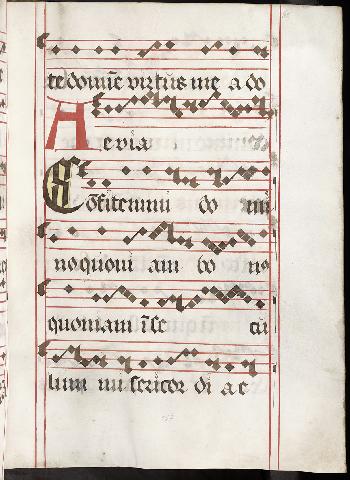 te domīe virtus me a do
A evia
Cōfitemini do mi
no quoni am bo n9
quoniam ī se cu
lum mi sericor di a e